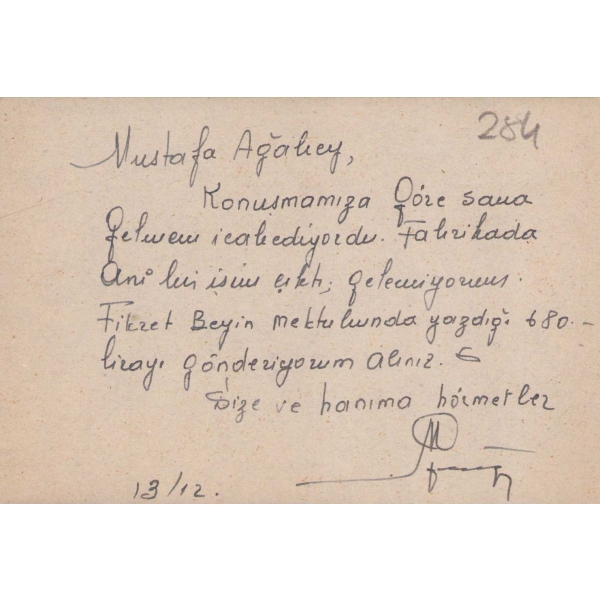 284
Mustafa Ağabey,
Konuşmamıza göre sana
gelmem icabediyordu. Fabrikada
Ani bir işim çıktı, gelemiyorum.
Fikret Beyin mektubunda yazdığı 680.-
lirayı gönderiyorum alınız.
Size ve hanıma hörmetler
13/12.